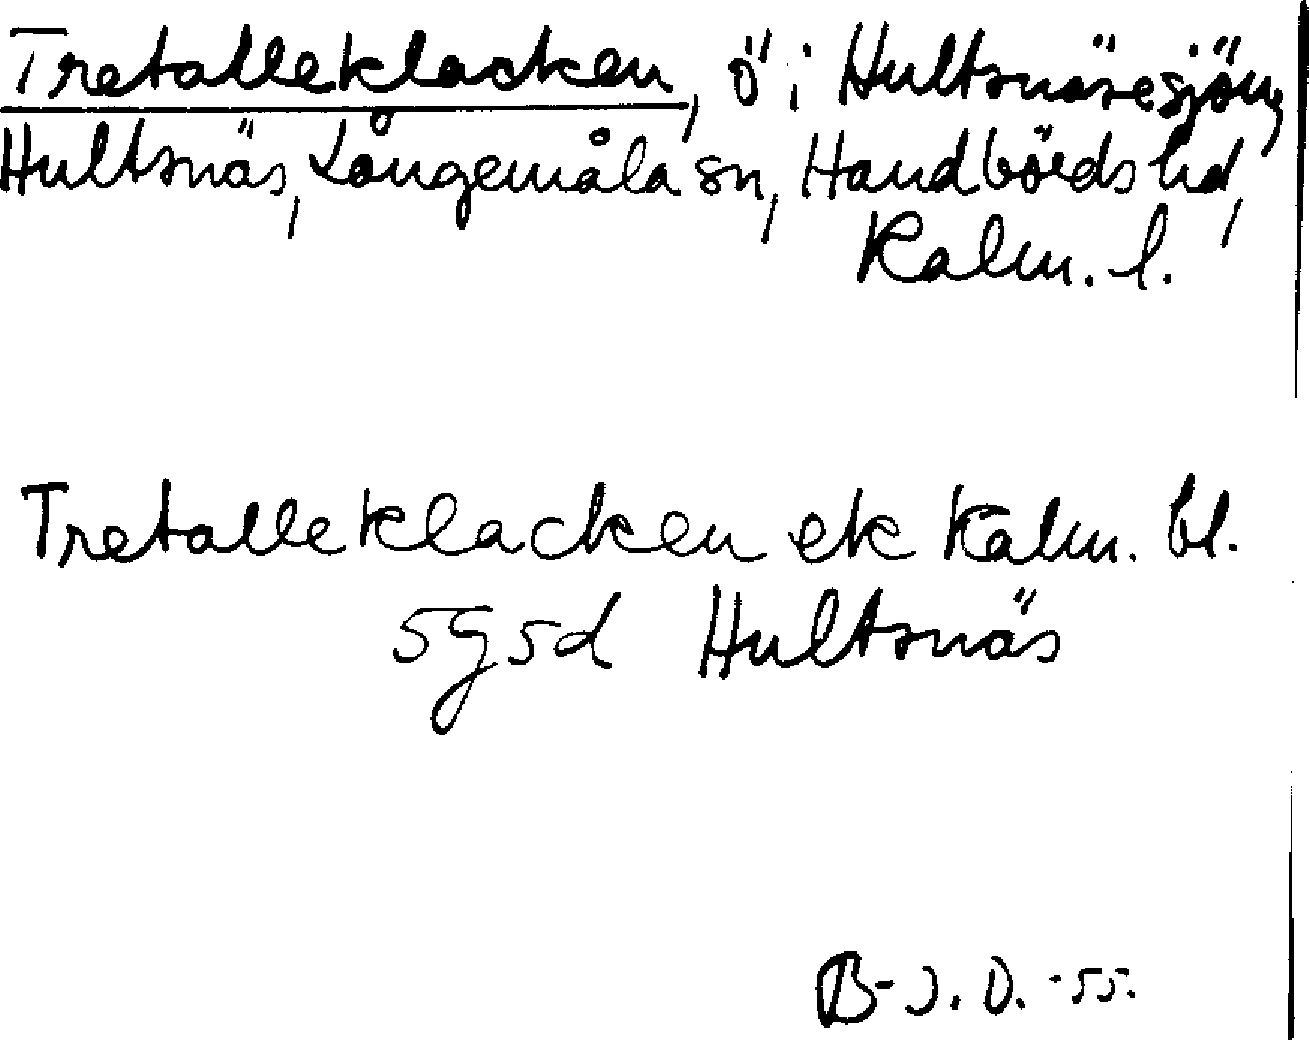 Tretalleklacken, ö i Hultsnäsesjön,
Hultsnäs, Långemåla sn, Handbörds hd,
Kalm. l.
Tretalleklacken ek Kalm. bl.
5G5d Hultsnäs
B-J. D. -55.